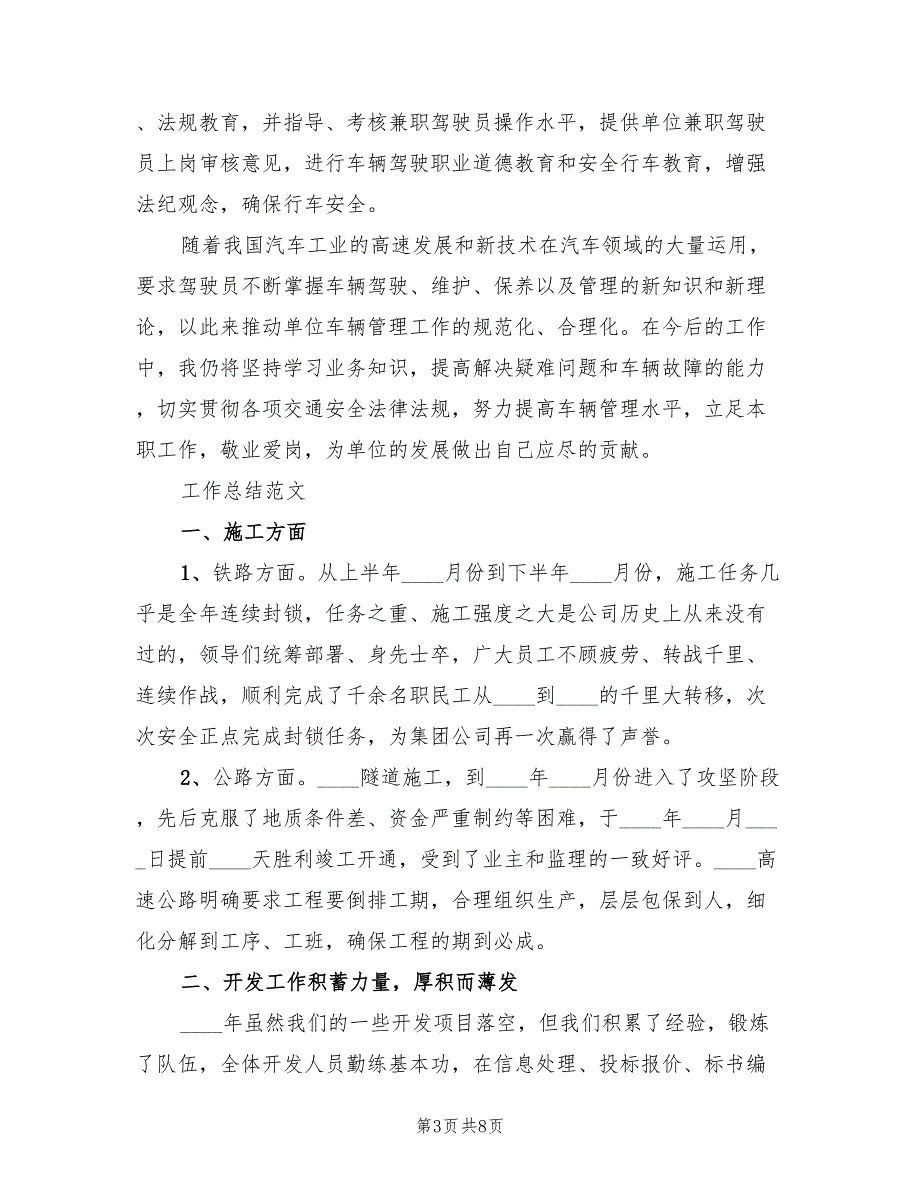 、法规教育，并指导、考核兼职驾驶员操作水平，提供单位兼职驾驶
员上岗审核意见，进行车辆驾驶职业道德教育和安全行车教育，增强
法纪观念，确保行车安全。
随着我国汽车工业的高速发展和新技术在汽车领域的大量运用，
要求驾驶员不断掌握车辆驾驶、维护、保养以及管理的新知识和新理
论，以此来推动单位车辆管理工作的规范化、合理化。在今后的工作
中，我仍将坚持学习业务知识，提高解决疑难问题和车辆故障的能力
，切实贯彻各项交通安全法律法规，努力提高车辆管理水平，立足本
职工作，敬业爱岗，为单位的发展做出自己应尽的贡献。
工作总结范文
一、施工方面
1、铁路方面。从上半年____月份到下半年____月份，施工任务几
乎是全年连续封锁，任务之重、施工强度之大是公司历史上从来没有
过的，领导们统筹部署、身先士卒，广大员工不顾疲劳、转战千里、
连续作战，顺利完成了千余名职民工从____到____的千里大转移，次
次安全正点完成封锁任务，为集团公司再一次赢得了声誉。
2、公路方面。____隧道施工，到____年____月份进入了攻坚阶段
，先后克服了地质条件差、资金严重制约等困难，于____年____月___
_日提前____天胜利竣工开通，受到了业主和监理的一致好评。____高
速公路明确要求工程要倒排工期，合理组织生产，层层包保到人，细
化分解到工序、工班，确保工程的期到必成。
二、开发工作积蓄力量，厚积而薄发
____年虽然我们的一些开发项目落空，但我们积累了经验，锻炼
了队伍，全体开发人员勤练基本功，在信息处理、投标报价、标书编
第3页 共8页